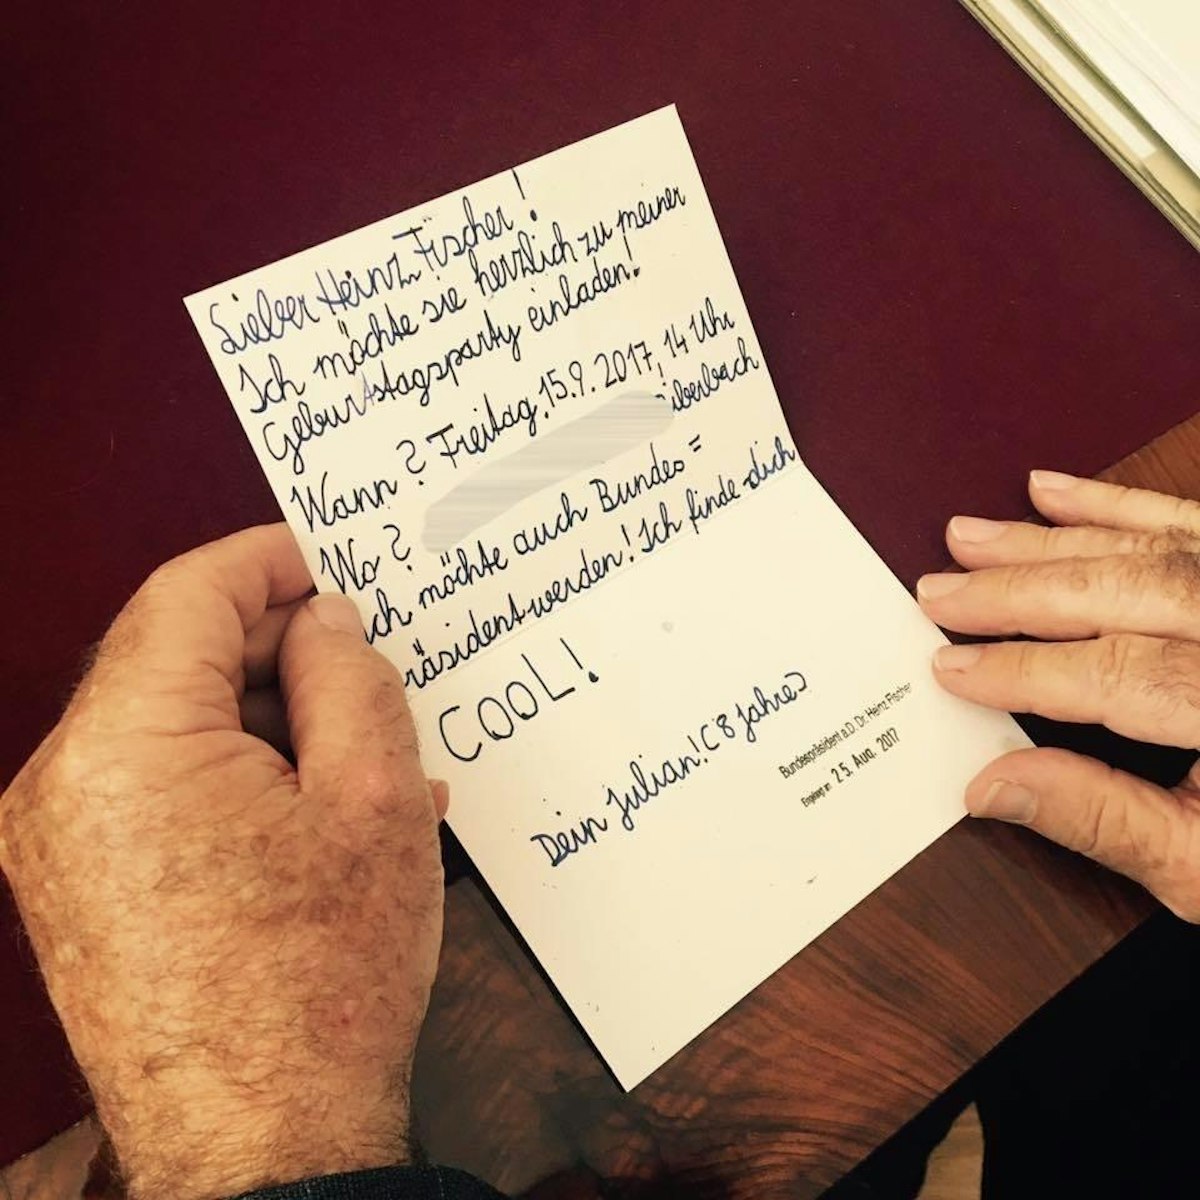 Lieber Heinz Fischer!
Ich möchte sie herzlich zu meiner
Geburtstagsparty einladen!
Wann? Freitag, 15.9.2017, 14 Uhr
Wo? Biberbach
Ich möchte auch Bundes=
präsident werden! Ich finde dich
COOL!
Dein Julian! (8 Jahre)
Bundespräsident a.D. Dr. Heinz Fischer
Eingelangt am 25. Aug. 2017